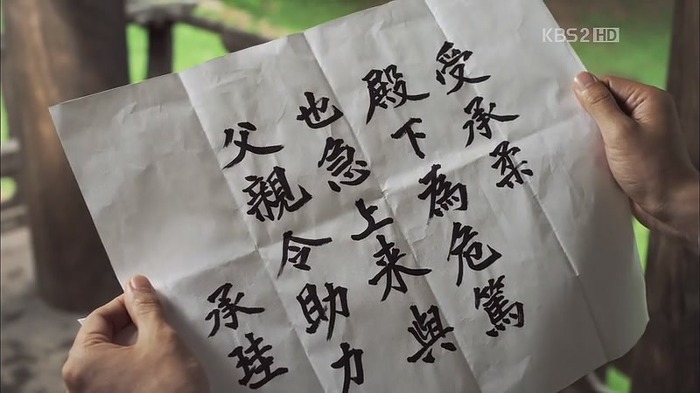 KBS2 HD
受承柔
殿下為危篤
也急上来與
父親令助力
承珪